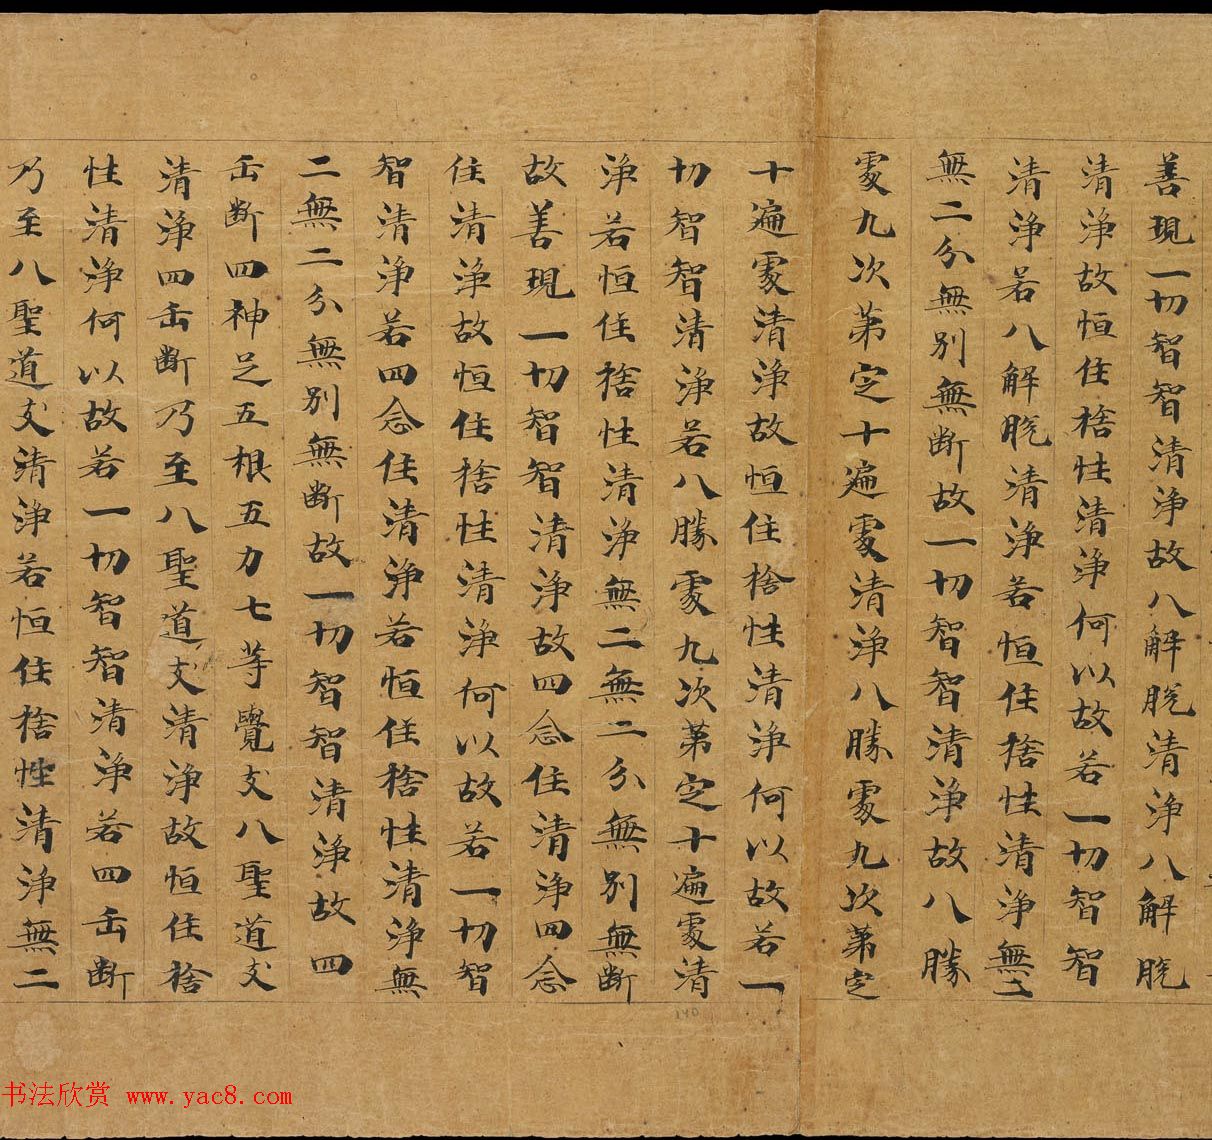 善現一切智智清淨故八解脫清淨八解脫
清淨故恒住捨性清淨何以故若一切智智
清淨若八解脫清淨若恒住捨性清淨無二
無二分無別無斷故一切智智清淨故八勝
處九次第定十遍處清淨八勝處九次第定
十遍處清淨故恒住捨性清淨何以故若一
切智智清淨若八勝處九次第定十遍處清
淨若恒住捨性清淨無二無二分無別無斷
故善現一切智智清淨故四念住清淨四念
住清淨故恒住捨性清淨何以故若一切智
智清淨若四念住清淨若恒住捨性清淨無
二無二分無別無斷故一切智智清淨故四
缶斷四神足五根五力七等覺支八聖道支
清淨四缶斷乃至八聖道支清淨故恒住捨
性清淨何以故若一切智智清淨若四缶斷
乃至八聖道支清淨若恒住捨性清淨無二
140
书法欣赏 www.yac8.com